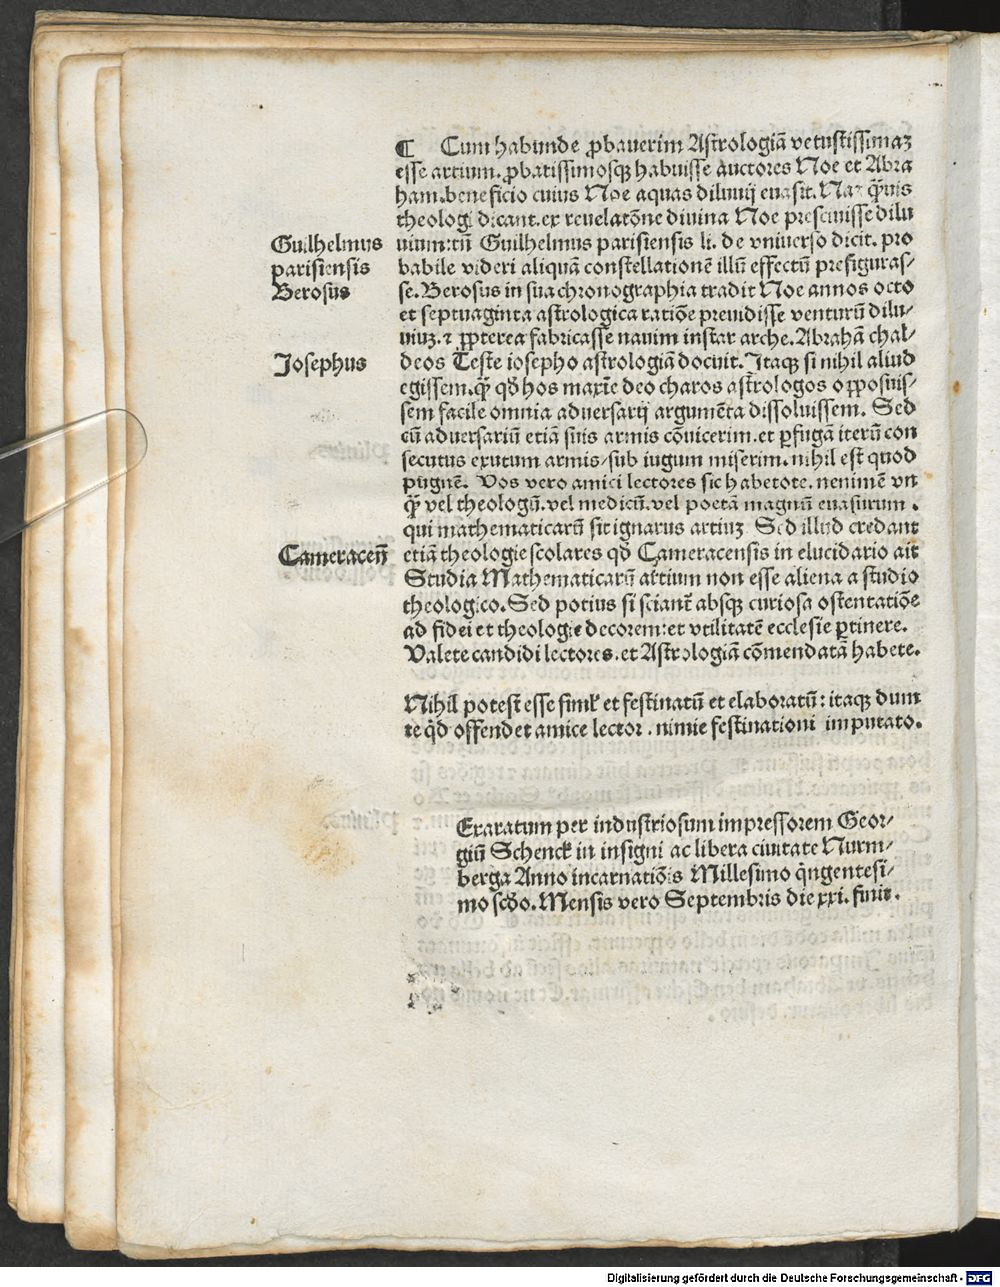 ¶ Cum habunde ꝓbauerim Astrologiā vetustissimaꝫ
esse artium. ꝓbatissimosqꝫ habuisse auctores Noe et Abra
ham. beneficio cuius Noe aquas diluuij euasit. Naꝫ q̄uis
theologi dicant. ex reuelatōne diuina Noe presciuisse dilu
Guilhelmus
parisiensis
Berosus
uium: tn̄ Guilhelmus parisiensis li. de vniuerso dicit. pro
babile videri aliquā constellationē illū effectū prefiguras⸗
se. Berosus in sua chronographia tradit Noe annos octo
et septuaginta astrologica ratiōe preuidisse venturū dilu⸗
uiuꝫ. ⁊ ꝓpterea fabricasse nauim instar arche. Abrahā chal⸗
Josephus
deos Teste iosepho astrologiā docuit. Itaqꝫ si nihil aliud
egissem. q̄ꝫ qd̄ hos maxīe deo charos astrologos oꝓposuis⸗
sem facile omnia aduersarij argumēta dissoluissem. Sed
cū aduersariū etiā suis armis cōuicerim. et ꝑfugā iterū con
secutus exutum armis/ sub iugum miserim. nihil est quod
pugnē. Vos vero amici lectores sic habetote. neminē vn
q̄ꝫ vel theologū. vel medicū. vel poetā magnū euasurum.
qui mathematicarū sit ignarus artiuꝫ Sed illud credant
Cameraceñ
etiā theologie scolares qd̄ Cameracensis in elucidario ait
Studia Mathematicarū artium non esse aliena a studio
theologico. Sed potius si sciant̄ absqꝫ curiosa ostentatiōe
ad fidei et theologie decorem: et vtilitatē ecclesie ꝑtinere.
Valete candidi lectores. et Astrologiā cōmendatā habete.
Nihil potest esse simł et festinatū et elaboratū: itaqꝫ dum
te qd̄ offendet amice lector. nimie festinationi imputato.
Exaratum per industriosum impressorem Geor⸗
giū Schenck in insigni ac libera ciuitate Nurm⸗
berga Anno incarnatiōis Millesimo q̄ngentesi⸗
mo scd̄o. Mensis vero Septembris die xxi. finit.
Digitalisierung gefördert durch die Deutsche Forschungsgemeinschaft - DFG